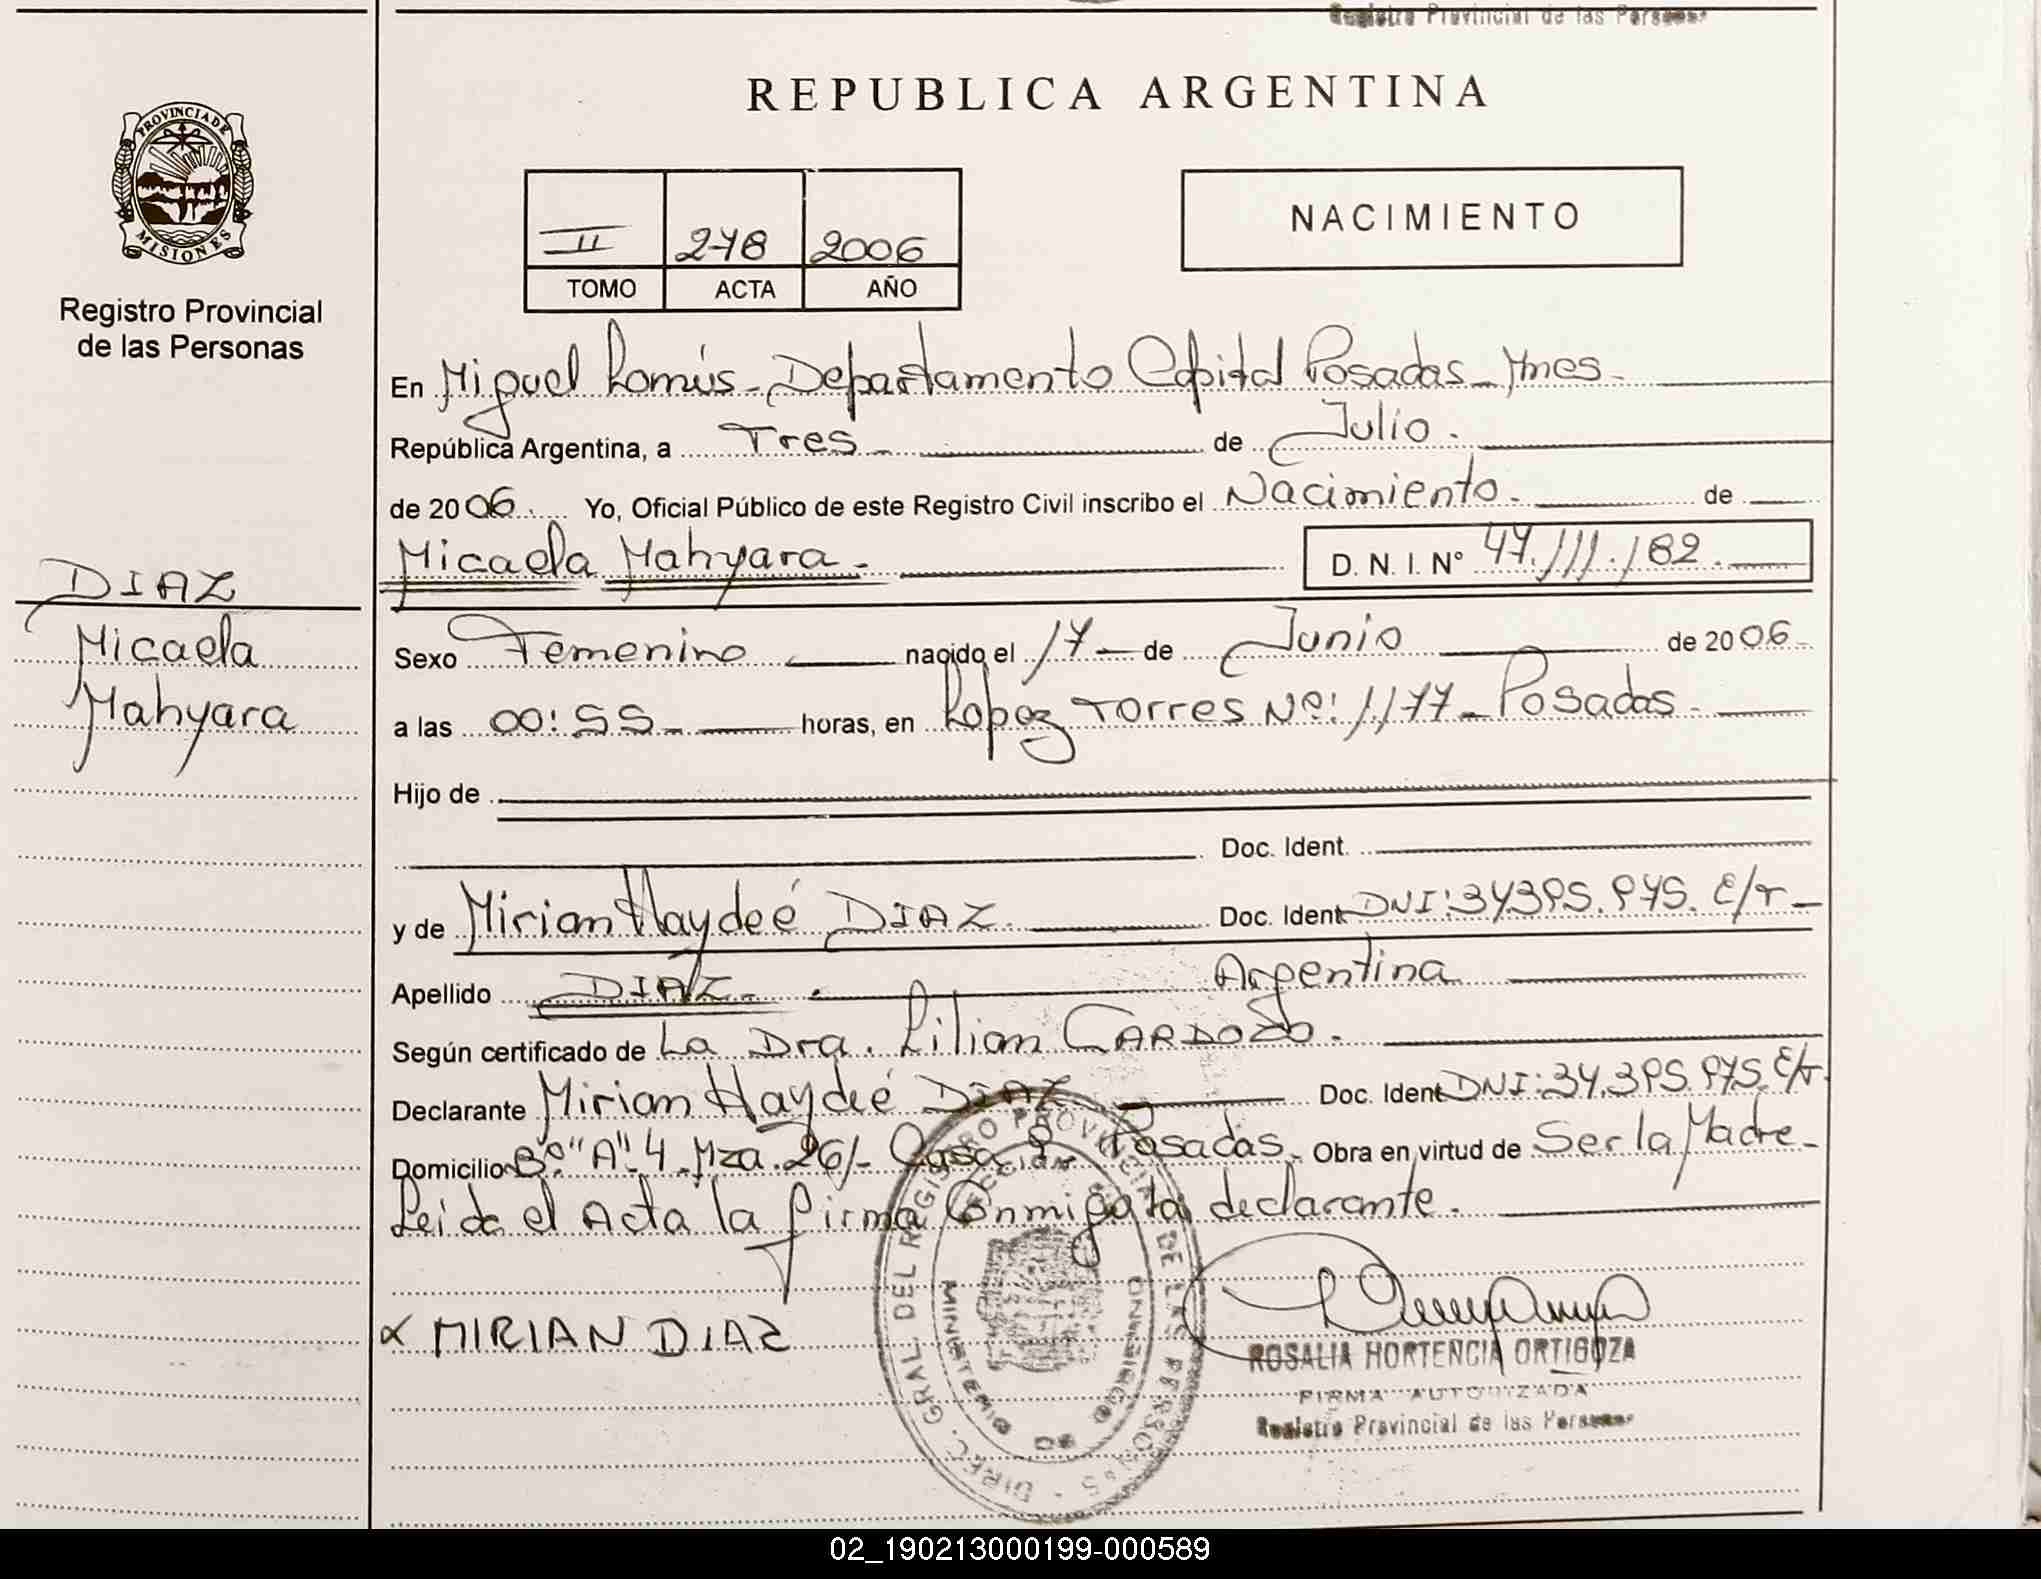 Registro Provincial de las Personas
REPUBLICA ARGENTINA
PROVINCIA DE
MISIONES
Registro Provincial
de las Personas
II 278 2006
TOMO ACTA AÑO
NACIMIENTO
En Miguel Lanús - Departamento Capital Posadas - Mnes -
República Argentina, a Tres - de Julio.
de 2006. Yo, Oficial Público de este Registro Civil inscribo el Nacimiento - de
Micaela Mahyara - D. N. I. Nº 47.111.182.
DIAZ
Micaela
Mahyara
Sexo Femenino nacido el 17 - de Junio de 2006 -
a las 00:55 - horas, en Lopez Torres Nº: 1177 - Posadas -
Hijo de
Doc. Ident.
y de Mirian Haydeé DIAZ. Doc. Ident. DNI: 34395.975. E/T -
Apellido DIAZ - . Argentina
Según certificado de La Dra. Lilian CARDOZO.
Declarante Mirian Haydeé DIAZ Doc. Ident. DNI: 34.395.975. E/T.
Domicilio Bº "A" 4 Mza. 26/- Casa 9 - Posadas - Obra en virtud de Ser la Madre -
Leida el Acta la firma Conmigo la declarante.
x MIRIAN DIAZ
ROSALIA HORTENCIA ORTIGOZA
FIRMA AUTORIZADA
Registro Provincial de las Personas
DIREC. GRAL DEL REGISTRO PROVINCIAL DE LAS PERSONAS
02_190213000199-000589